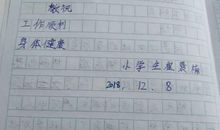 敬祝
工作顺利
身体健康
小学生崔
2018.12.8